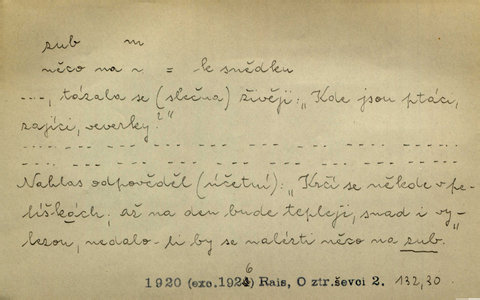 zub m
něco na z = k snědku
..., tázala se (slečna) živěji: „Kde jsou ptáci,
zajíci, veverky?“
Nahlas odpověděl (účetní): „Krčí se někde v pe-
líškách; až na den bude tepleji, snad i vy-
lezou, nedalo-li by se nalézti něco na zub.“
1920 (exc. 1926) Rais, O ztr. ševci 2. 132,30.